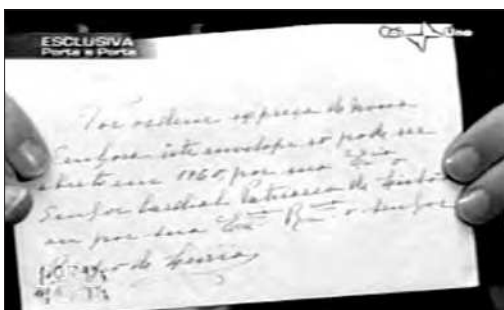 ESCLUSIVA
Porta a Porta
Rai Uno
Por ordem expressa de Nossa
Senhora este envelope só pode ser
aberto em 1960, por sua Emcia o
Senhor Cardial Patriarca de Lisboa
ou por sua Excia Rma o Senhor
Bispo de Leiria